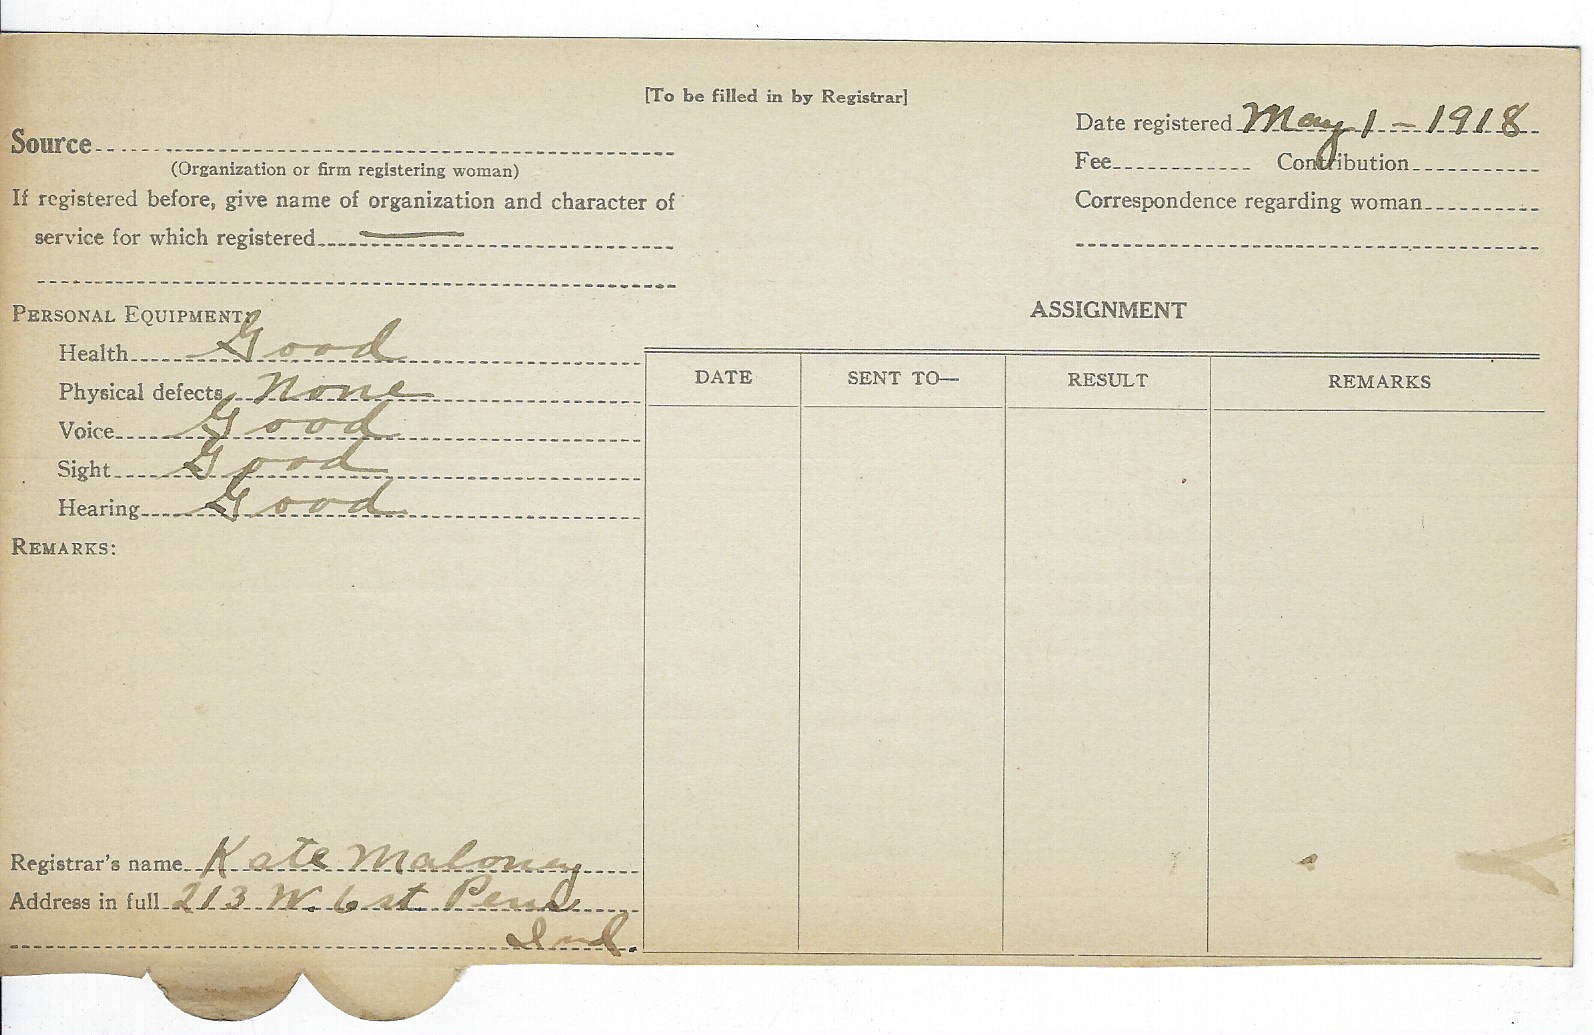 [To be filled in by Registrar]
Source
(Organization or firm registering woman)
If registered before, give name of organization and character of
service for which registered —
Date registered May 1 – 1918
Fee Contribution
Correspondence regarding woman
PERSONAL EQUIPMENT:
Health Good
Physical defects None
Voice Good
Sight Good
Hearing Good
REMARKS:
ASSIGNMENT
DATE SENT TO— RESULT REMARKS
Registrar's name Kate Maloney
Address in full 213 W. 6 st. Peru
Ind.